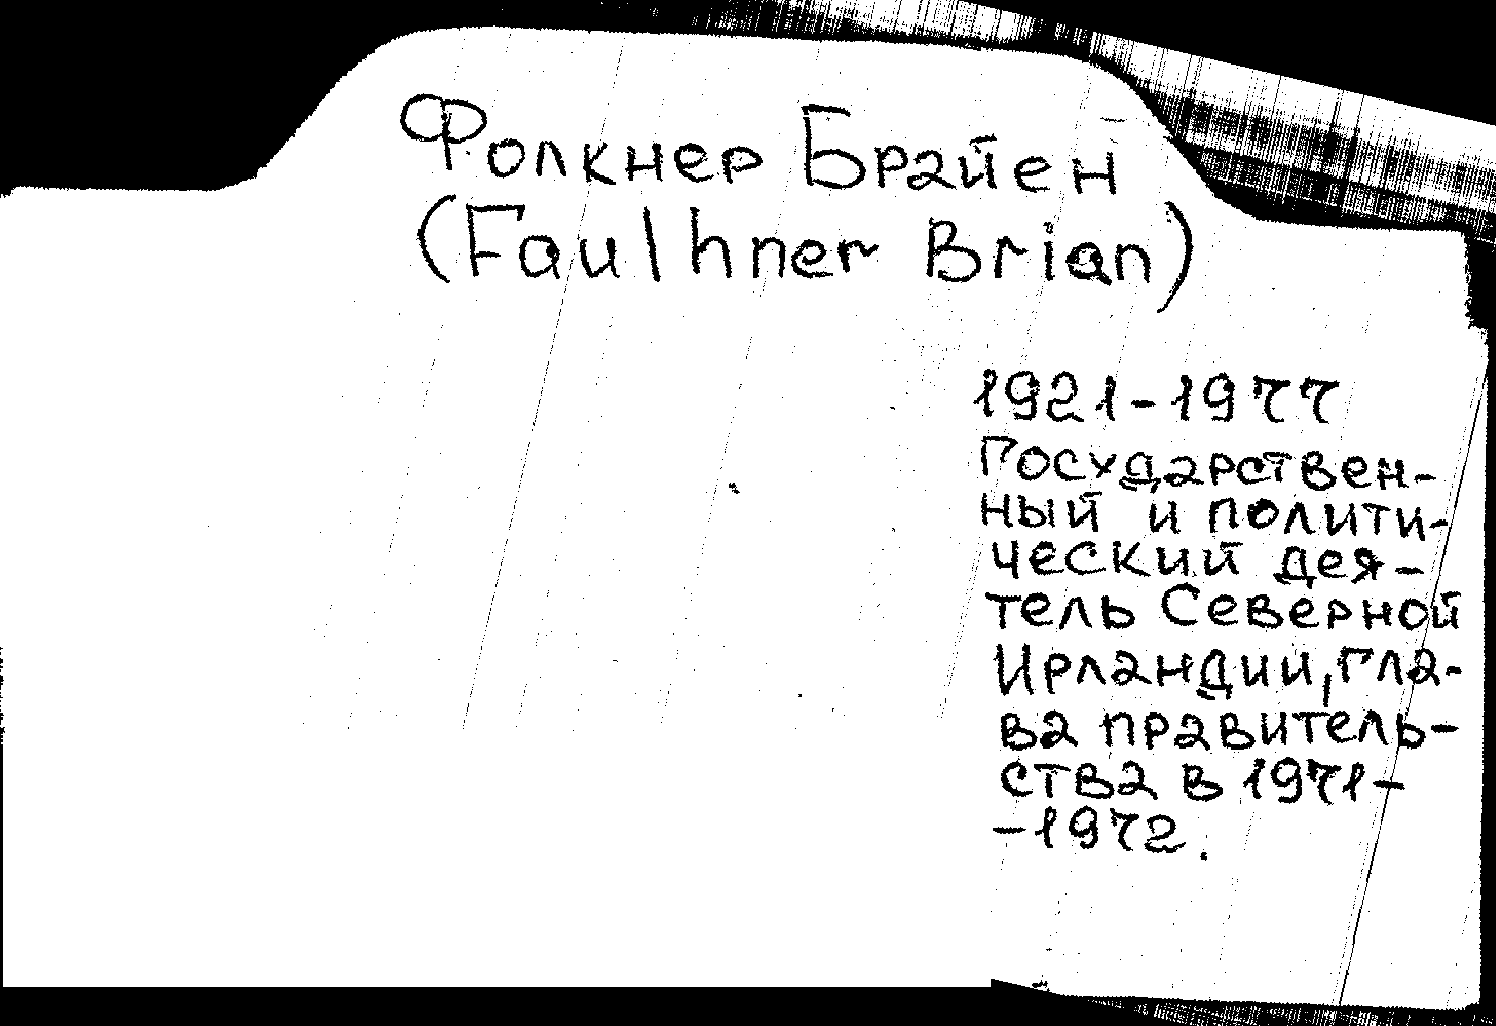 Фолкнер Брайен
(Faulhner Brian)
1921-1977
Государствен-
ный и полити-
ческий дея-
тель Северной
Ирландии, гла-
ва правитель-
ства в 1971-
-1972.